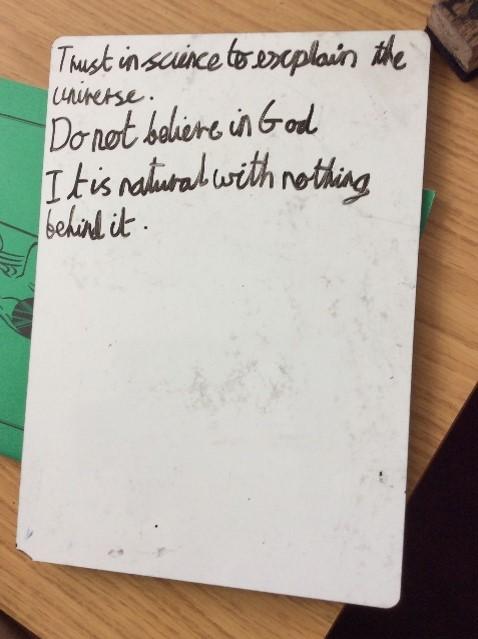 Trust in science to explain the
universe.
Do not believe in God
It is natural with nothing
behind it.